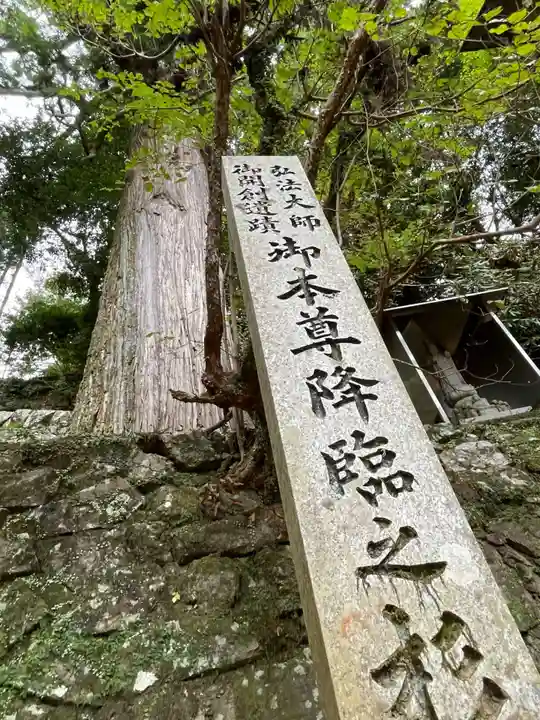 弘法大師
御開創遺蹟
御本尊降臨之